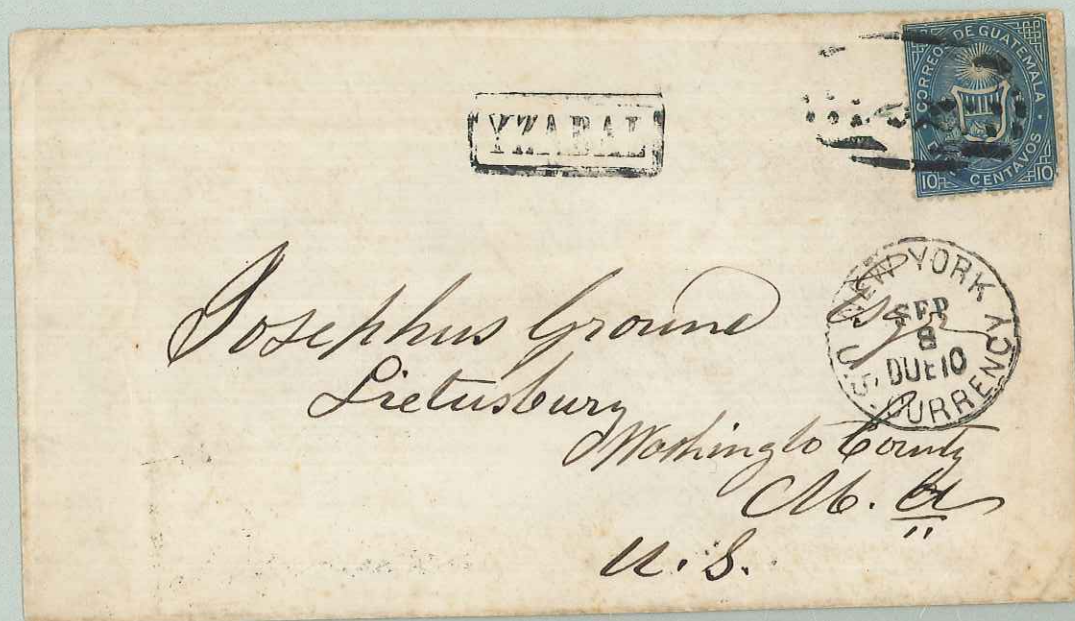 CORREOS DE GUATEMALA
CENTAVOS
10 10
YZABAL
NEW YORK
SEP
8
DUE 10
U.S. CURRENCY
Josephus Ground Esqr
Lietusbury
Washingto County
Md.
U.S.